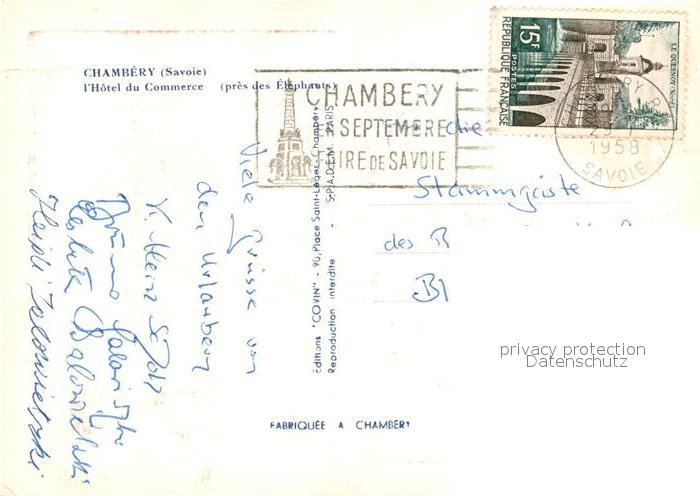 CHAMBÉRY (Savoie)
l'Hôtel du Commerce (près des Éléphants)
CHAMBERY
SEPTEMBRE
IRE DE SAVOIE
15F
POSTES
REPUBLIQUE FRANÇAISE
LE QUESNOY
1958
SAVOIE
die
Stammgäste
des R
Bl
Viele Grüsse von
den Urlaubern
K. Heinz
Bruno
Heidi
Editions "COVIN" - 90, Place Saint-Léger - Chambéry
Reproduction interdite - S.P.A.D.E.M. PARIS
FABRIQUÉE A CHAMBÉRY
privacy protection
Datenschutz